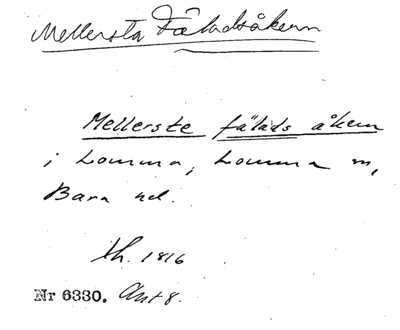 Mellersta Fäladsåkern
Mellerste fälads åkern
i Lomma, Lomma sn,
Bara hd.
Lh. 1816
Nr 6330. Akt 8.